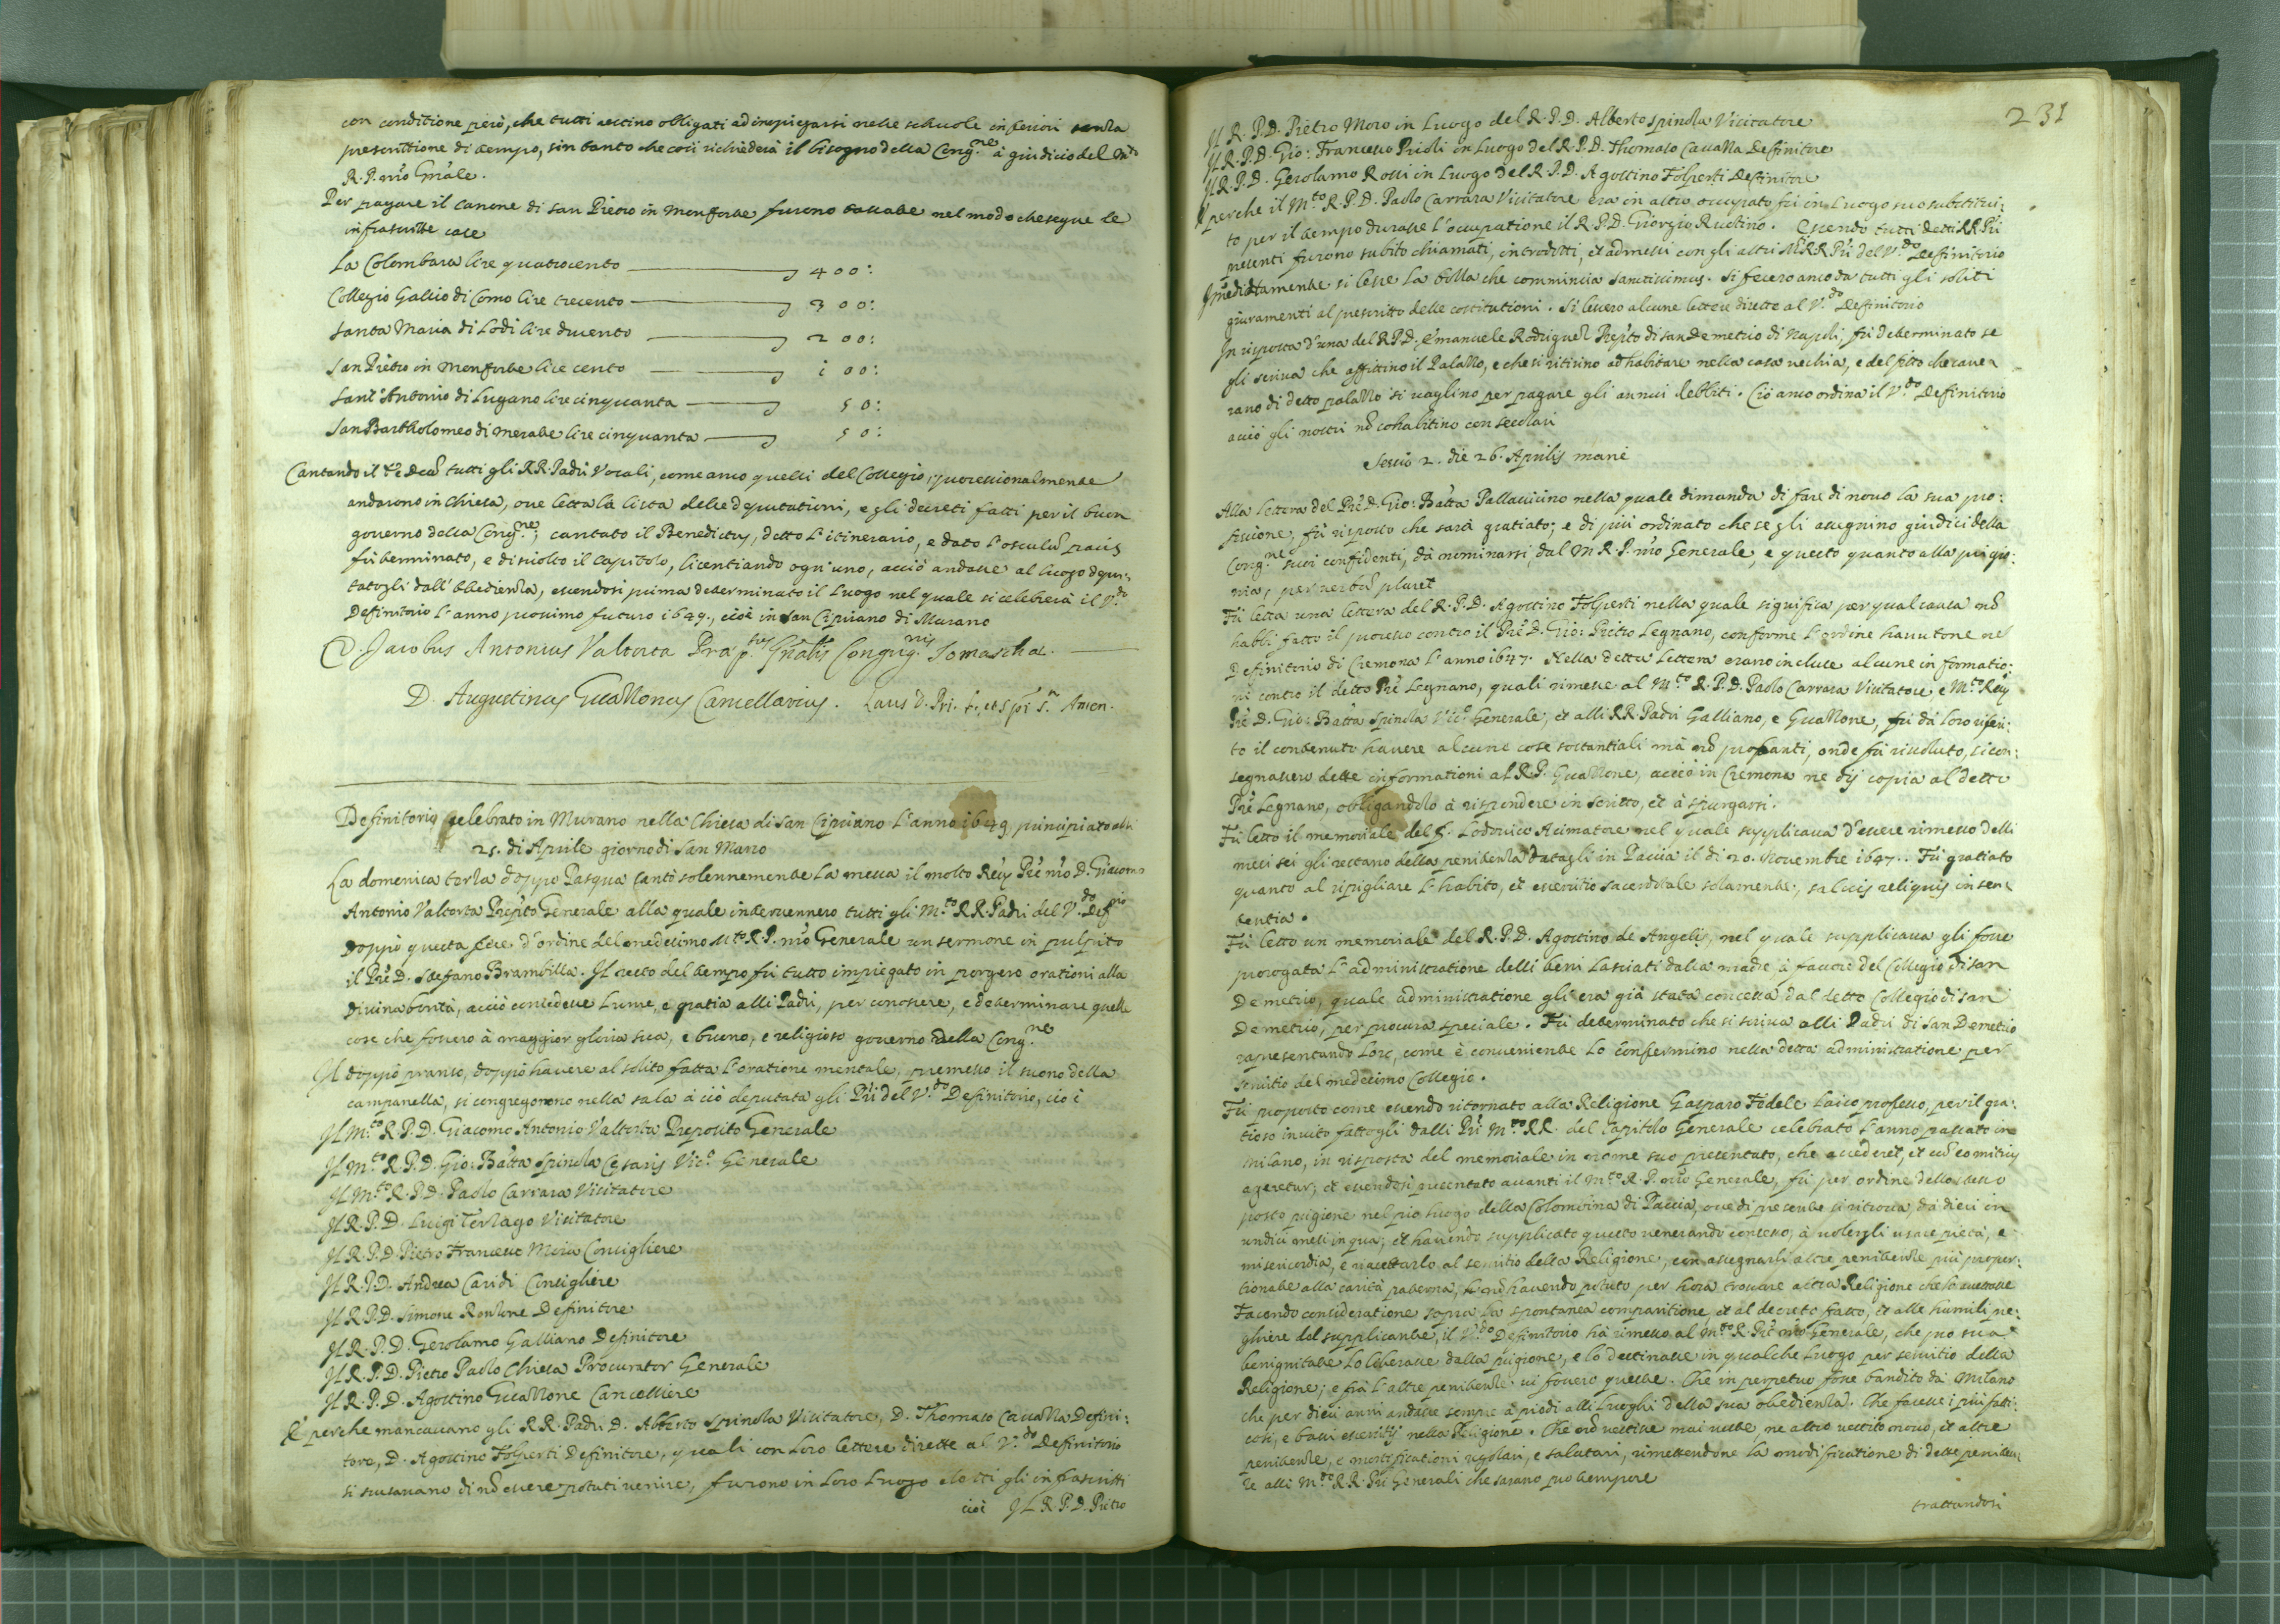 con conditione però, che tutti restino obligati ad impiegarsi nelle schuole inferiori senza
prescrittione di tempo, sin tanto che così richiederà il bisogno della Cong.ne à giudicio del M.to
R. P. nro Gnale.
Per pagare il canone di San Pietro in Monforte furono tassate nel modo che segue le
infrascritte case
La Colombara lire quatrocento 400:
Collegio Gallio di Como lire trecento 300:
Santa Maria di Lodi lire ducento 200:
San Pietro in Monforte lire cento 100:
Sant'Antonio di Lugano lire cinquanta 50:
San Bartholomeo di Merate lire cinquanta 50:
Cantando il Te Deū tutti gli RR. Padri Vocali, come anco quelli del Collegio, processionalmente
andarono in Chiesa, oue letta la lista delle deputationi, e gli decreti fatti per il buon
gouerno della Cong.ne, cantato il Benedictus, detto l'itinerario, e dato l'osculū pacis
fù terminato, e disciolto il Capitolo, licentiando ogn'uno, acciò andasse al luogo depu:
tatogli dall'obbedienza, essendosi prima determinato il Luogo nel quale si celebrerà il V.do
Definitorio l'anno prossimo futuro 1649, cioè in San Cipriano di Murano
D. Jacobus Antonius Valtorta Præp.tus Gnalis Congreg.nis Somaschæ.
D. Augustinus Guazzonus Cancellarius. Laus D. Pri. f. et Spi S. Amen.
Definitorio celebrato in Murano nella Chiesa di San Cipriano l'anno 1649 principiato alli
25. di Aprile giorno di San Marco
La domenica terza doppo Pasqua cantò solennemente la messa il molto Reu. Pre nro D. Giacomo
Antonio Valtorta Prepto Generale alla quale interuennero tutti gli M.to RR. Padri del V.do Def.rio
Doppò questa fece d'ordine del medesimo M.to R. P. nro Generale un sermone in pulpito
il Pre D. Stefano Brambilla. Il resto del tempo fù tutto impiegato in porgere orationi alla
Diuina bontà, acciò concedesse lume, e gratia alli Padri, per conoscere, e determinare quelle
cose che fossero à maggior gloria sua, e buono, e religioso gouerno della Cong.ne
Il doppò pranso, doppò hauere al solito fatta l'oratione mentale, premesso il suono della
campanella, si congregorono nella sala à ciò deputata gli Pri del V.do Definitorio, cioè
Il M.to R. P. D. Giacomo Antonio Valtorta Preposito Generale
Il M.to R. P. D. Gio: Batta Spinola Cesaris Vic.o Generale
Il M.to R. P. D. Paolo Carrara Visitatore
Il R. P. D. Luigi Terzago Visitatore
Il R. P. D. Pietro Francesco Moro Consigliere
Il R. P. D. Andrea Caridi Consigliere
Il R. P. D. Simone Definitore
Il R. P. D. Gerolamo Galliano Definitore
Il R. P. D. Pietro Paolo Chiesa Procurator Generale
Il R. P. D. Agostino Guazzone Cancelliere
E perche mancauano gli RR. Padri D. Alberto Spinola Visitatore, D. Thomaso Cauazza Defini:
tore, D. Agostino Folperti Definitore, quali con loro lettere dirette al V.do Definitorio
si scusauano di nō essere potuti venire, furono in loro Luogo eletti gli infrascritti
cioè Il R. P. D. Pietro
231
Il R. P. D. Pietro Moro in Luogo del R. P. D. Alberto Spinola Visitatore
Il R. P. D. Gio: Francesco Prioli in Luogo del R. P. D. Thomaso Cauazza Definitore
Il R. P. D. Gerolamo Rossi in Luogo del R. P. D. Agostino Folperti Definitore
E perche il M.to R. P. D. Paolo Carrara Visitatore era in altro occupato fù in Luogo suo substitui:
to per il tempo durasse l'occupatione il R. P. D. Giorgio. Essendo tutti detti RR. Pri
presenti furono subito chiamati, introdotti, et admessi con gli altri M.RR. Pri del V.do Definitorio
Immediatamente si lesse la bolla che commincia Sanctissimus. Si fecero anco da tutti gli soliti
giuramenti al prescritto delle costitutioni. Si lessero alcune lettere dirette al V.do Definitorio
In risposta d'una del R. P. D. Emanuele Rodriguez Prepto di San Demetrio di Napoli, fù determinato se
gli scriua che affittino il Palazzo, e che si ritirino ad habitare nella casa vechia, e del fitto che caue:
rano di detto palazzo si vaglino per pagare gli annui debbiti. Ciò anco ordina il V.do Definitorio
acciò gli nostri nō cohabitino con secolari
Sessio 2. die 26. Aprilis mane
Alla lettera del Pre D. Gio: Batta Pallauicino nella quale dimanda di fare di nouo la sua pro:
fessione, fù risposto che sarà gratiato; e di più ordinato che se gli assegnino giudici della
Cong.ne suoi confidenti, da nominarsi, dal M. R. P. nro Generale, e questo quanto alla prigio:
nia, per
Fù letta una lettera del R. P. D. Agostino Folperti nella quale significa per qual causa nō
habbi fatto il processo contro il Pre D. Gio: Pietro Legnano, conforme l'ordine hauutone nel
Definitorio di Cremona l'anno 1647. Nella detta lettera erano incluse alcune informatio:
ni contro il detto Pre Legnano, quali rimesse al M.to R. P. D. Paolo Carrara Visitatore e M.to Reu.
Pre D. Gio: Batta Spinola Vic.o Generale, et alli RR. Padri Galliano, e Guazzone, fù da loro riferi:
to il contenuto hauere alcune cose sostantiali mà nō probanti, onde fù risoluto, si con:
segnassero dette informationi al R. P. Guazzone, acciò in Cremona ne dij copia al detto
Pre Legnano, obligandolo à rispondere in scritto, et à spurgarsi.
Fù letto il memoriale del f. Lodouico Acimatore nel quale supplicaua d'essere rimesso delli
mesi sei gli restano della penitenza datagli in Pauia il di 20. Nouembre 1647. Fù gratiato
quanto al ripigliare l'habito, et essercitio sacerdotale solamente, saluis reliquis in sen:
tentia.
Fù letto un memoriale del R. P. D. Agostino de Angelis, nel quale supplicaua gli fosse
prorogata l'administratione delli beni lasciati dalla madre à fauore del Collegio di San
Demetrio, quale administratione gli era già stata concessa dal detto Collegio di San
Demetrio, per procura speciale. Fù determinato che si scriua alli Padri di San Demetrio
rapresentando loro, come è conueniente lo confermino nella detta administratione per
seruitio del medesimo Collegio.
Fù proposto come essendo ritornato alla Religione Gasparo Fedele laico professo, per il gra:
tioso inuito fattogli dalli Pri M.to RR. del Capitolo Generale celebrato l'anno passato in
Milano, in risposta del memoriale in nome suo presentato, che accederet, et cū eo mitius
ageretur; et essendosi presentato auanti il M.to R. P. nro Generale, fù per ordine dello stesso
posto prigione nel pio luogo della Colombina di Pauia, oue di presente si ritroua, da dieci in
undici mesi in qua; et hauendo supplicato questo venerando consesso, à volergli usare pietà, e
misericordia, e riaccettarlo al seruitio della Religione, con assegnarli altre penitenze più propor:
tionate alla carità paterna, nō hauendo potuto per hora trouare altra Religione che lo accettasse
Facendo consideratione sopra la spontanea comparitione, et al decreto fatto, et alle humili pre:
ghiere del supplicante, il V.do Definitorio hà rimesso al M.to R. Pre nro Generale, che pro sua
benignitate lo liberasse dalla prigione, e lo destinasse in qualche luogo per seruitio della
Religione; e frà l'altre penitenze vi fossero queste. Che in perpetuo fosse bandito da Milano
che per dieci anni andasse sempre à piedi alli luoghi della sua obedienza. Che facesse i più fati:
cosi, e bassi essercitij nella Religione. Che nō vestisse mai veste, ne altro vestito nouo, et altre
penitenze, e mortificationi regolari, e salutari, rimettendone la modificatione di dette peniten:
ze alli M.to RR. Pri Generali che sarano pro tempore
trattandosi